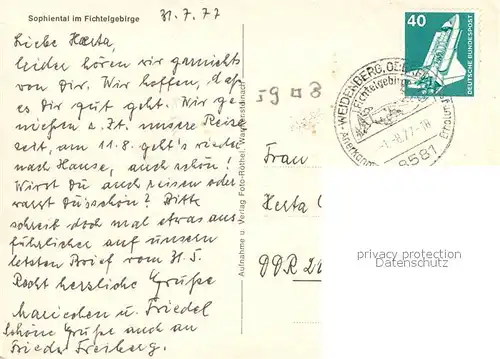 Sophiental im Fichtelgebirge
31.7.77
Liebe Herta,
leider hören wir garnichts
von Dir. Wir hoffen, daß
es Dir gut geht. Wir ge-
nießen z. Zt. unsere Reise
zeit, am 11.8. geht's wieder
nach Hause, auch schön!
Wirst Du auch reisen oder
warst Du schon? Bitte
schreib doch mal etwas aus
führlicher auf unsern
letzten Brief vom 31.5.
Recht herzliche Grüße
Mariechen u. Friedel
Schöne Grüße auch an
Frieda Freiberg.
Aufnahme u. Verlag Foto-Röthel
59 8
40
DEUTSCHE BUNDESPOST
WEIDENBERG, OBERFR
Fichtelgebirge
-1.-8.77-18
8581
Anerkannter Erholungsort
Frau
Herta
DDR
privacy protection
Datenschutz